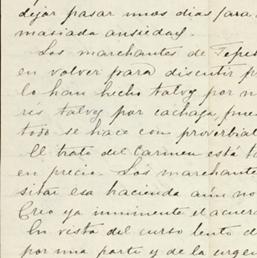 dejar pasar unos dias para
masiada ansiedad.
Los marchantes de Tepes
en volver para discutir p
lo han hecho talvez por n
rés talvez por cachaza, pues
todo se hace con proverbial
El trato del Carmen está
en precio. Los marchante
sitar esa hacienda aún no
Creo ya inminente el acuer
En vista del curso lento d
por una parte y de la urgen